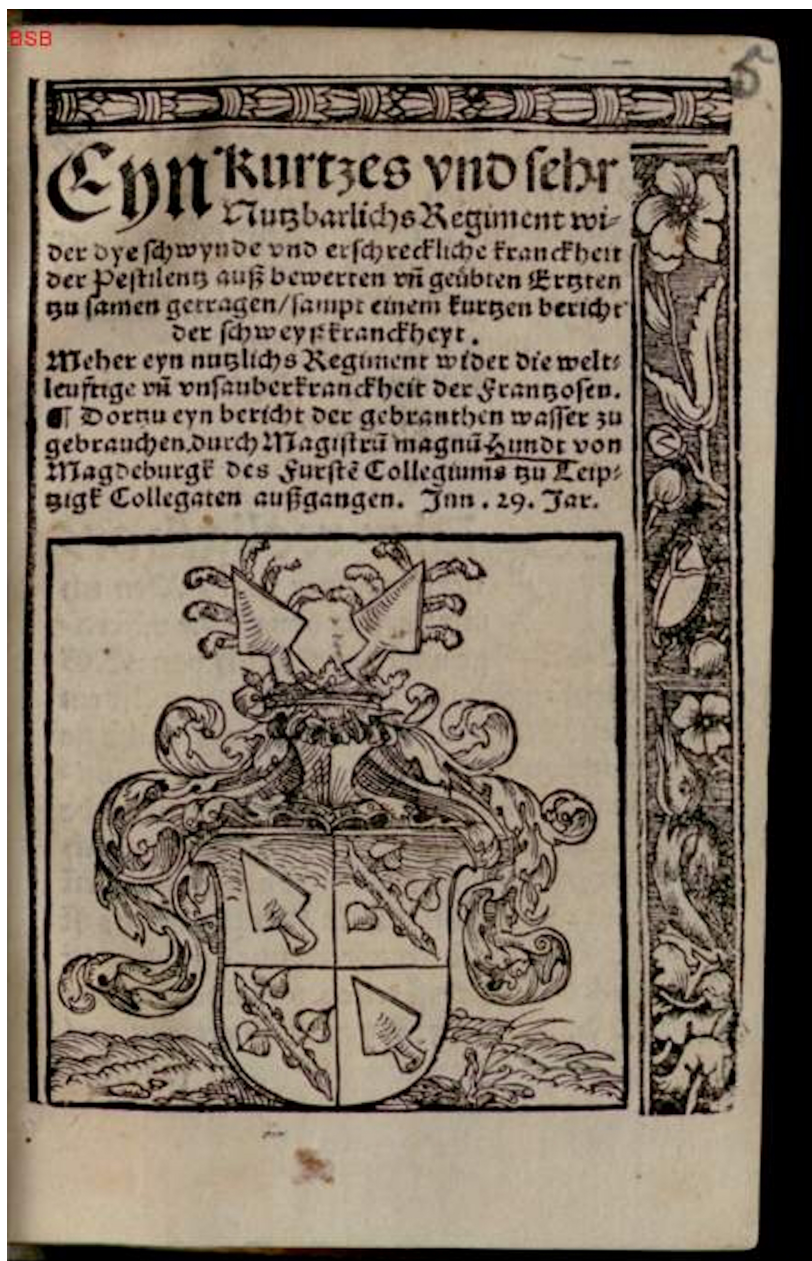 BSB
5
Eyn kurtzes vnd sehr
Nutzbarlichs Regiment wi⸗
der dye schwynde vnd erschreckliche kranckheit
der Pestilentz auß bewerten vn̄ geübten Ertzten
tzu samen getragen/sampt einem kurtzen bericht
der schweyßkranckheyt.
Meher eyn nutzlichs Regiment wider die welt⸗
leufftige vn̄ vnsauberkranckheit der Frantzosen.
¶ Dortzu eyn bericht der gebranthen wasser zu
gebrauchen.durch Magistrū magnū Hundt von
Magdeburgk des Furstē Collegiums tzu Leip⸗
tzigk Collegaten außgangen. Jnn . 29. Jar.